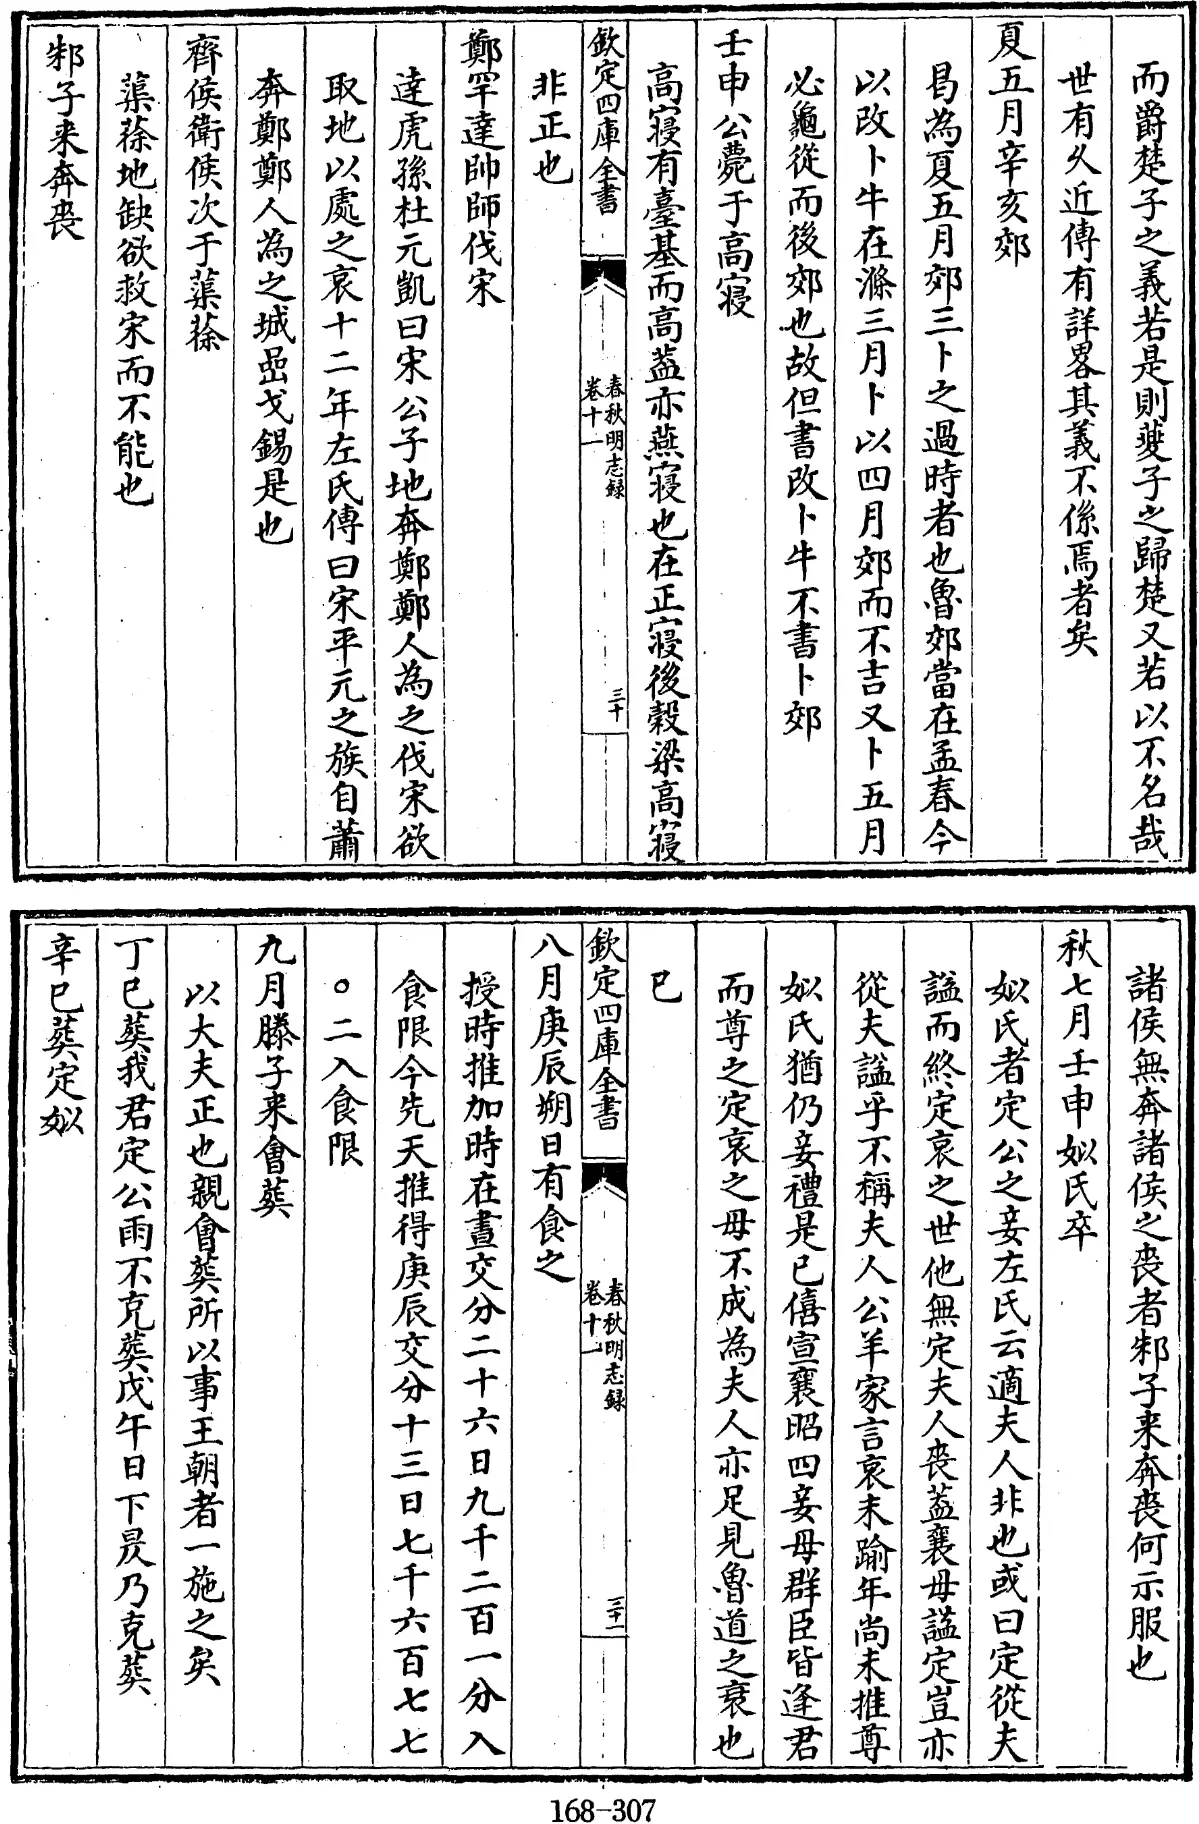 而爵楚子之義若是則夔子之歸楚又若以不名哉
世有乆近傳有詳畧其義不係焉者矣
夏五月辛亥郊
曷為夏五月郊三卜之過時者也魯郊當在孟春今
以改卜牛在滌三月卜以四月郊而不吉又卜五月
必龜從而後郊也故但書改卜牛不書卜郊
壬申公薨于高寢
高寢有臺基而高葢亦燕寢也在正寢後穀梁高寢
欽定四庫全書
春秋明志録
卷十一
三十
非正也
鄭罕達帥師伐宋
達虎孫杜元凱曰宋公子地奔鄭鄭人為之伐宋欲
取地以處之哀十二年左氏傳曰宋平元之族自蕭
奔鄭鄭人為之城嵒戈錫是也
齊侯衛侯次于蕖蒢
蕖蒢地缺欲救宋而不能也
邾子来奔喪
諸侯無奔諸侯之喪者邾子来奔喪何示服也
秋七月壬申姒氏卒
姒氏者定公之妾左氏云適夫人非也或曰定從夫
諡而終定哀之世他無定夫人喪葢襄母諡定豈亦
從夫諡乎不稱夫人公羊家言哀未踰年尚未推尊
姒氏猶仍妾禮是已僖宣襄昭四妾母群臣皆逢君
而尊之定哀之母不成為夫人亦足見魯道之衰也
已
欽定四庫全書
春秋明志録
卷十一
三十一
八月庚辰朔日有食之
授時推加時在晝交分二十六日九千二百一分入
食限今先天推得庚辰交分十三日七千六百七七
○二入食限
九月滕子来會葬
以大夫正也親會葬所以事王朝者一施之矣
丁巳葬我君定公雨不克葬戊午日下昃乃克葬
辛巳葬定姒
168-307